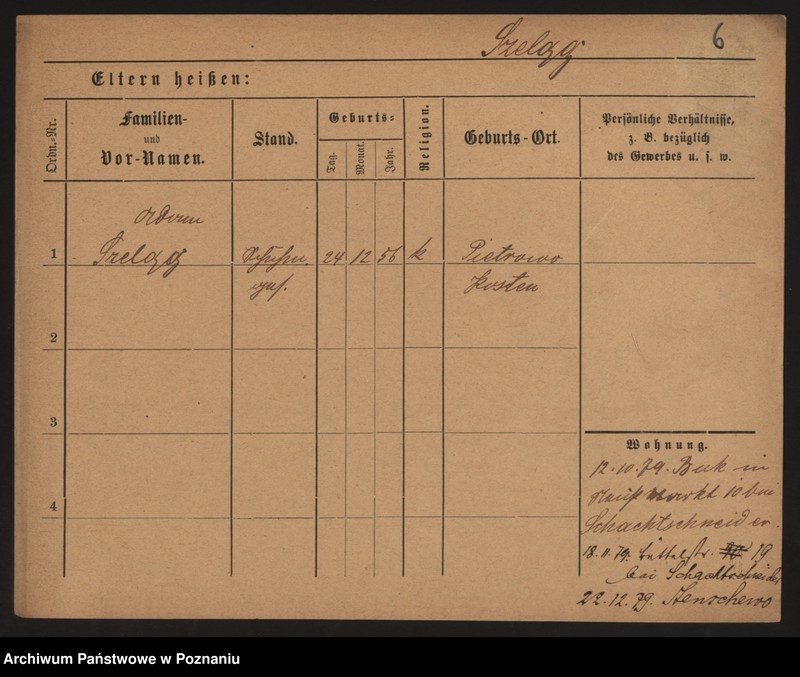 Szeląg
6
Eltern heißen:
Ordn.-Nr.
Familien-
und
Vor-Namen.
Stand.
Geburts-
Tag.
Monat.
Jahr.
Religion.
Geburts-Ort.
Persönliche Verhältnisse,
z. B. bezüglich
des Gewerbes u. s. w.
Adam
1 Szeląg 24 12 56 k Pietrowo
Kosten
2
3
4
Wohnung.
12.10.79. Buk in
markt 10 bei
Schachtschneider.
18.11.79. Büttelstr. 19
bei Schachtschneider
22.12.79.
Archiwum Państwowe w Poznaniu